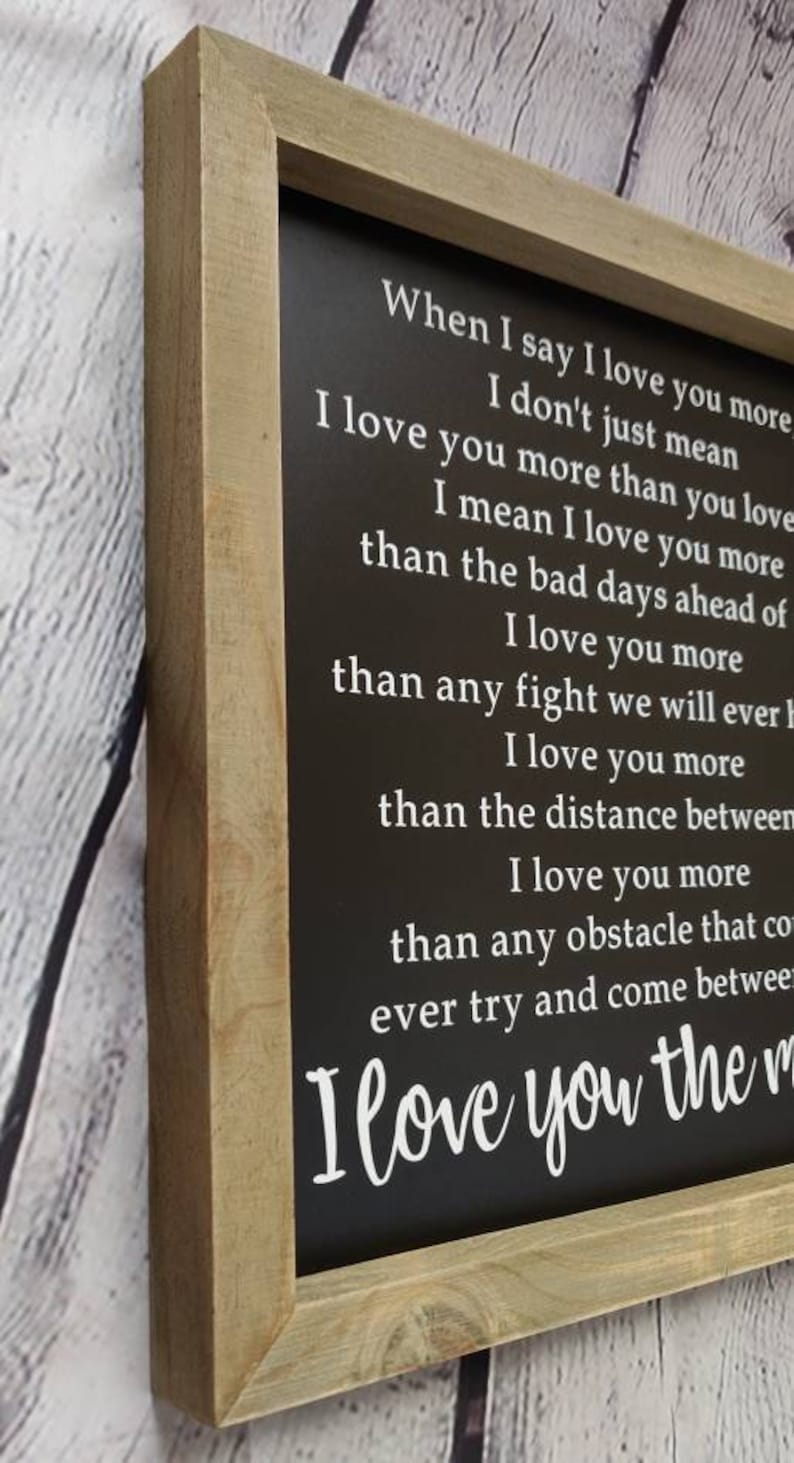 When I say I love you more,
I don't just mean
I love you more than you love
I mean I love you more
than the bad days ahead of
I love you more
than any fight we will ever
I love you more
than the distance between
I love you more
than any obstacle that
ever try and come between
I love you the